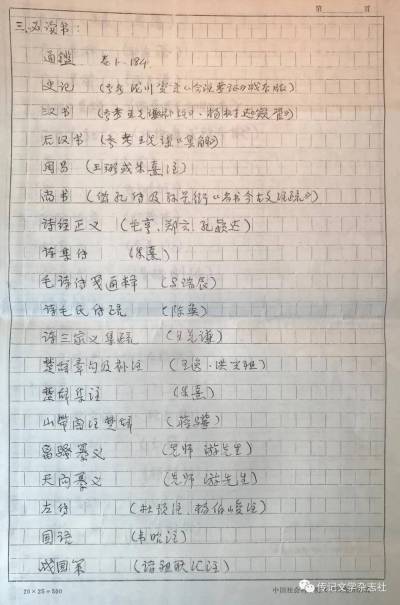 第 页
三、必读书：
通鉴 卷1-184
史记 (参考泷川资言《会注考证》或存版)
汉书 (参考王先谦补注、杨树达《窥管》)
后汉书 (参考王先谦《集解》)
周易 (王弼或朱熹注)
尚书 (伪孔传及孙星衍《尚书今古文注疏》)
诗经正义 (毛亨、郑玄、孔颖达)
诗集传 (朱熹)
毛诗传笺通释 (马瑞辰)
诗毛氏传疏 (陈奂)
诗三家义集疏 (王先谦)
楚辞章句及补注 (王逸、洪兴祖)
楚辞集注 (朱熹)
山带阁注楚辞 (蒋骥)
离骚纂义 (老师 游先生)
天问纂义 (老师 游先生)
左传 (杜预注、杨伯峻注)
国语 (韦昭注)
战国策 (诸祖耿汇注)
20×25=500 中国社会
传记文学杂志社